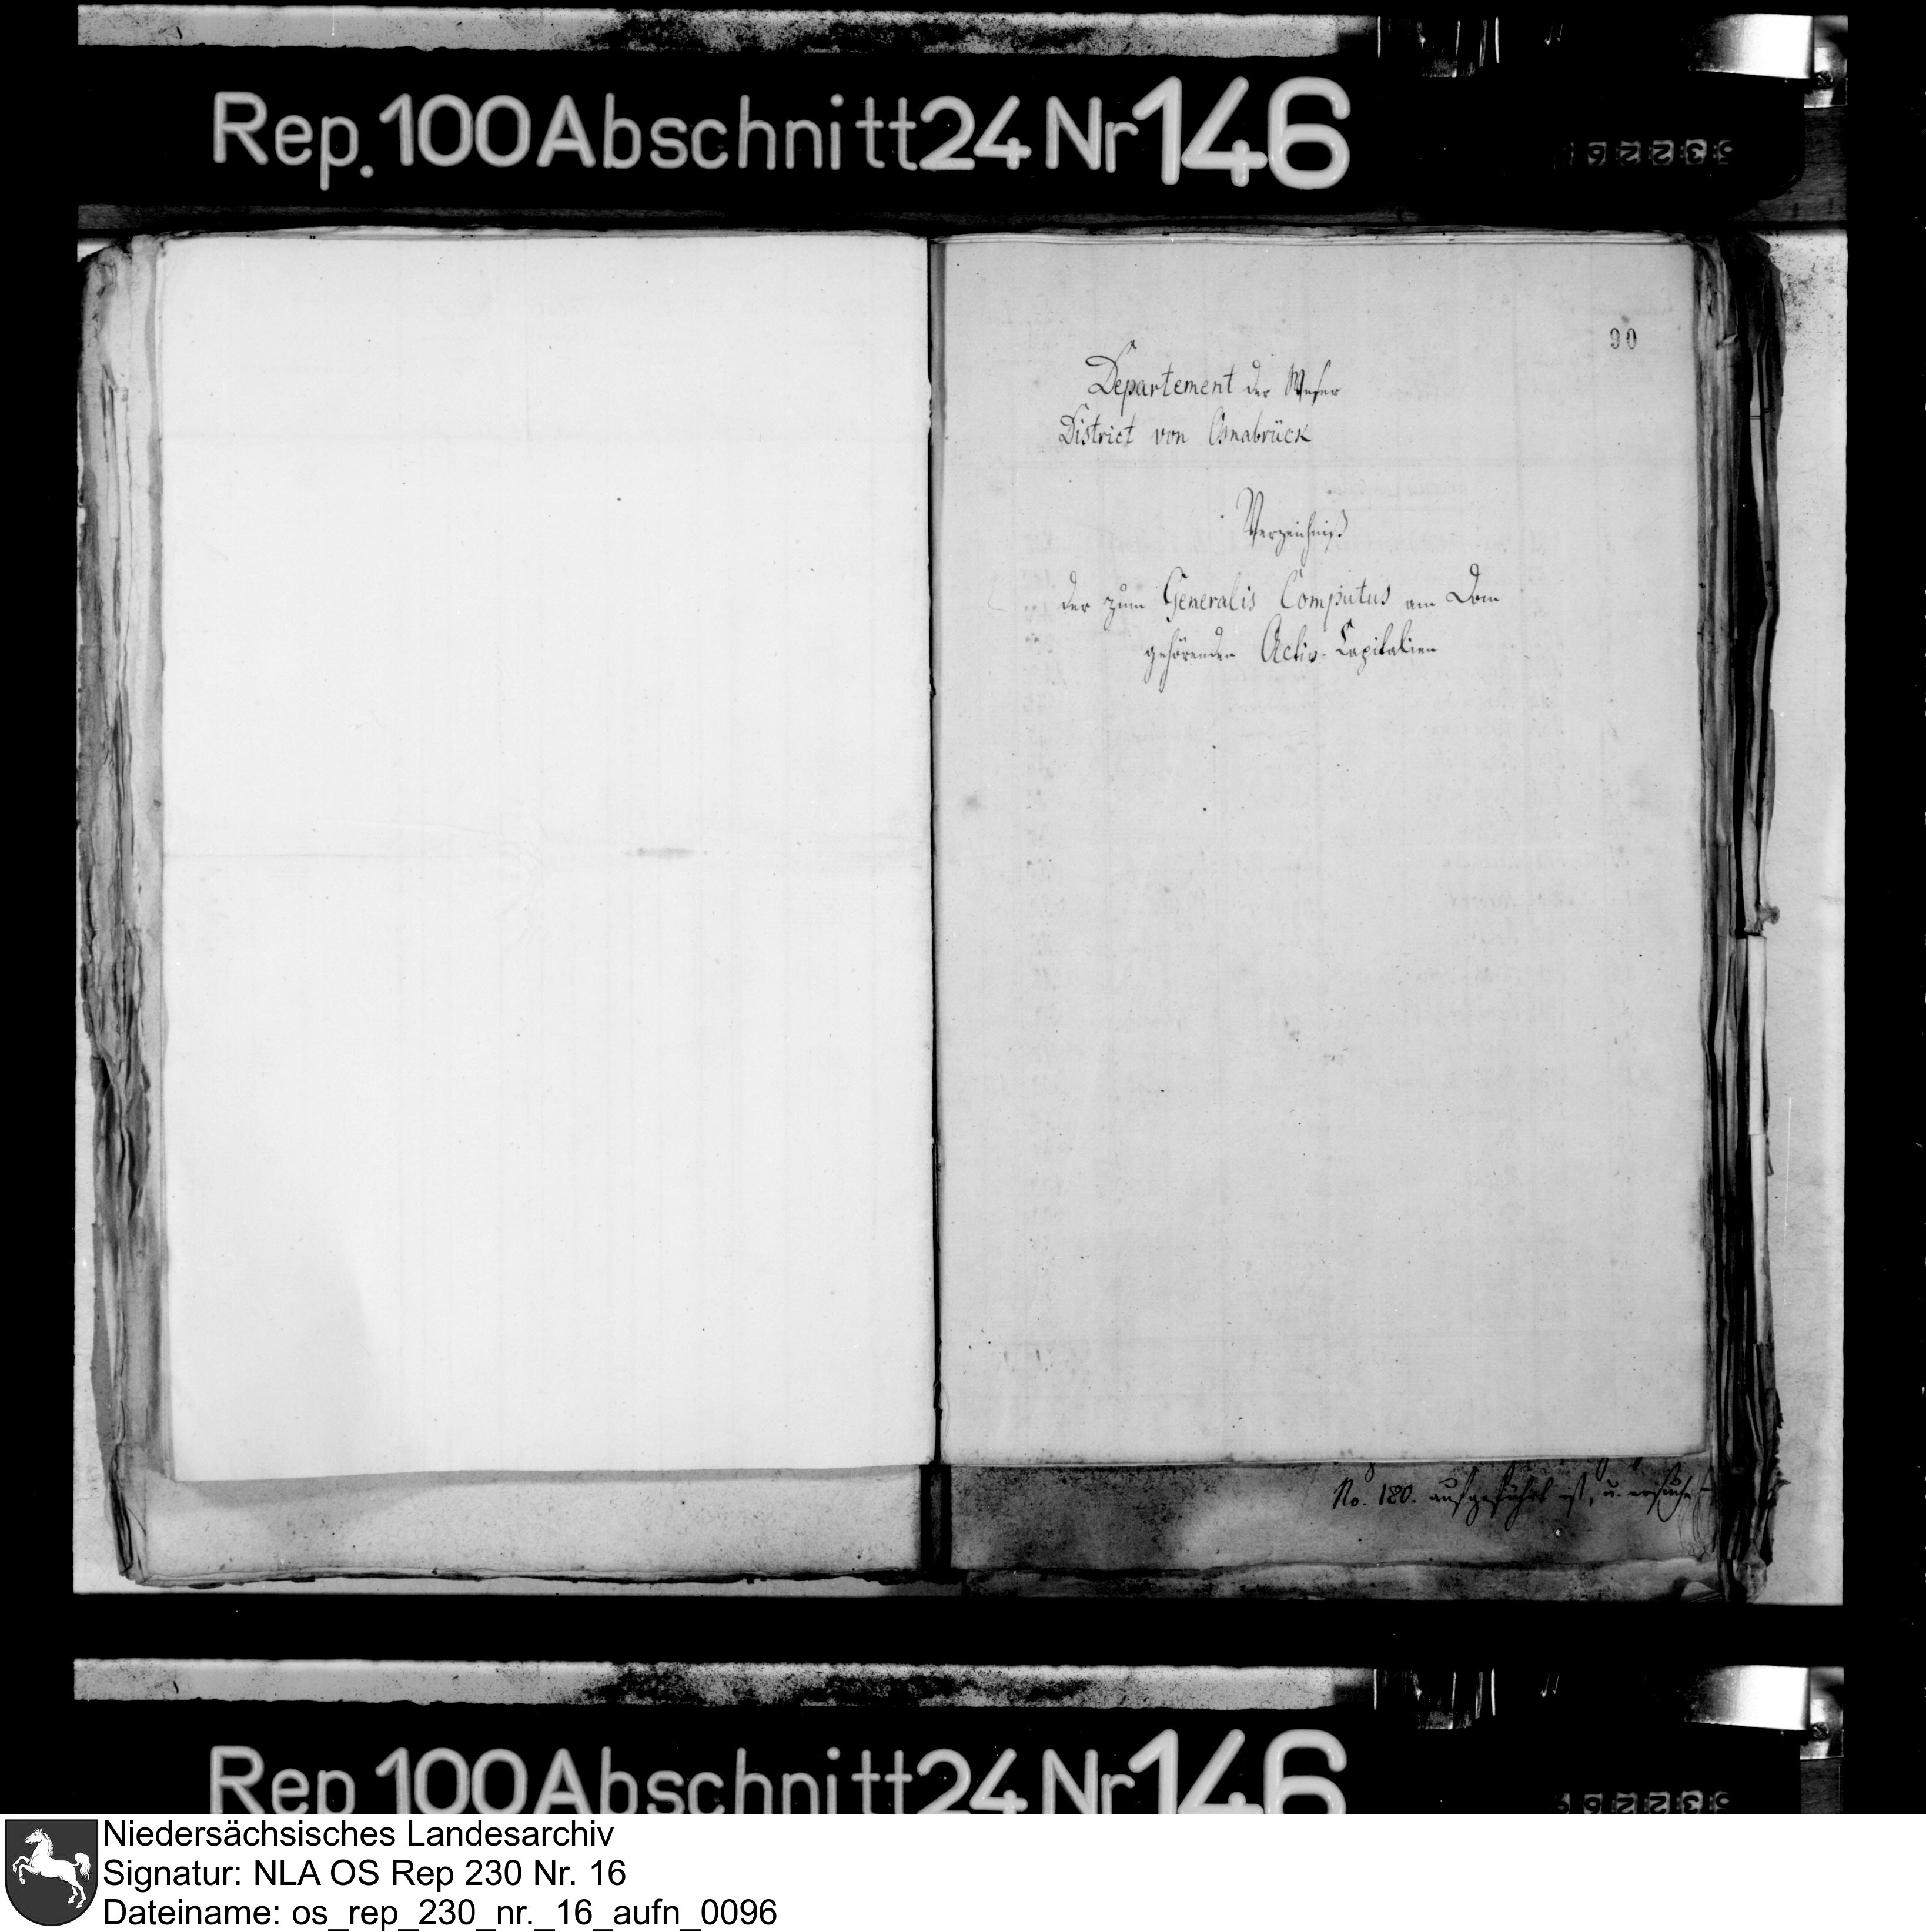 Rep. 100 Abschnitt 24 Nr 146
90
Departement der Weser
District von Osnabrück
Verzeichniß
der zum Generalis Computus am Dom
gehörenden Activ-Capitalien
No. 180. aufgeführt ist, u. ersuche
Rep 100 Abschnitt 24 Nr 146
Niedersächsisches Landesarchiv
Signatur: NLA OS Rep 230 Nr. 16
Dateiname: os_rep_230_nr._16_aufn_0096